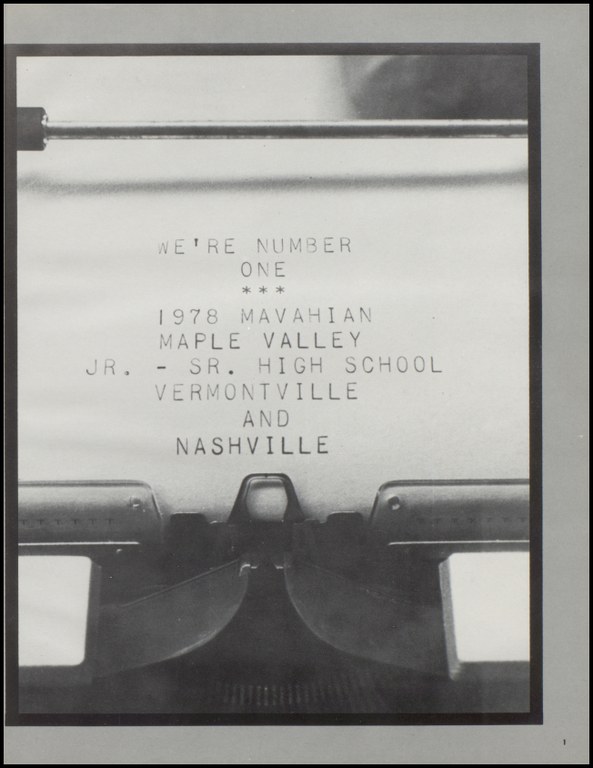 WE'RE NUMBER
ONE
***
1978 MAVAHIAN
MAPLE VALLEY
JR. - SR. HIGH SCHOOL
VERMONTVILLE
AND
NASHVILLE
1